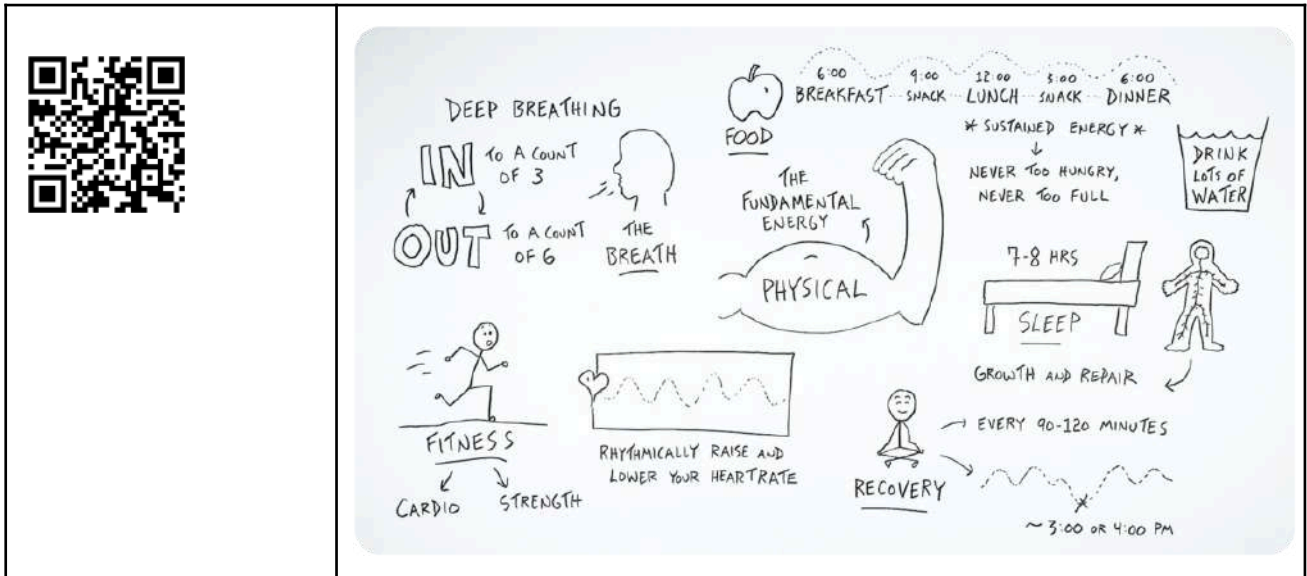 DEEP BREATHING
IN TO A COUNT
OF 3
OUT TO A COUNT
OF 6
THE
BREATH
FOOD
6:00 9:00 12:00 3:00 6:00
BREAKFAST SNACK LUNCH SNACK DINNER
* SUSTAINED ENERGY *
NEVER TOO HUNGRY,
NEVER TOO FULL
DRINK
LOTS OF
WATER
THE
FUNDAMENTAL
ENERGY
PHYSICAL
7-8 HRS
SLEEP
GROWTH AND REPAIR
FITNESS
CARDIO
STRENGTH
RHYTHMICALLY RAISE AND
LOWER YOUR HEARTRATE
RECOVERY
EVERY 90-120 MINUTES
~ 3:00 OR 4:00 PM